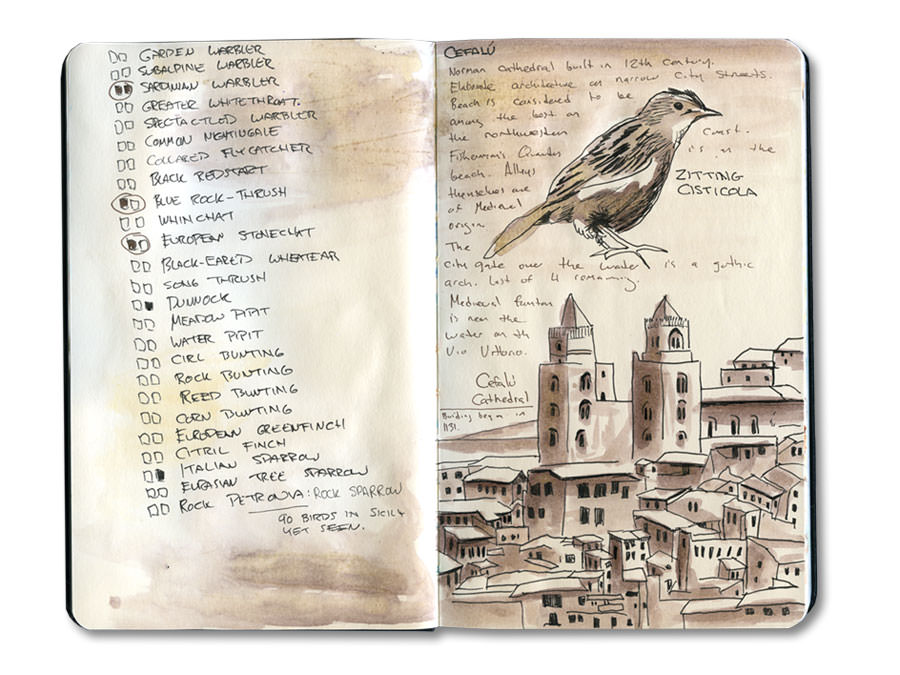 GARDEN WARBLER
SUBALPINE WARBLER
SARDINIAN WARBLER
GREATER WHITETHROAT.
SPECTACLED WARBLER
COMMON NIGHTINGALE
COLLARED FLYCATCHER
BLACK REDSTART
BLUE ROCK-THRUSH
WHINCHAT
EUROPEAN STONECHAT
BLACK-EARED WHEATEAR
SONG THRUSH
DUNNOCK
MEADOW PIPIT
WATER PIPIT
CIRL BUNTING
ROCK BUNTING
REED BUNTING
CORN BUNTING
EUROPEAN GREENFINCH
CITRIL FINCH
ITALIAN SPARROW
EURASIAN TREE SPARROW
ROCK PETRONIA: ROCK SPARROW
90 BIRDS IN SICILY
YET SEEN.
CEFALÚ
Norman cathedral built in 12th century.
Elaborate architecture on narrow city streets.
Beach is considered to be
among the best on
the northwestern coast.
Fisherman's Quarter is on the
beach. Alleys
themselves are
of Medieval
origin.
The
city gate over the water is a gothic
arch. last of 4 remaining.
Medieval fountain
is near the
water on th
Via Vittorio.
ZITTING
CISTICOLA
Cefalú
Cathedral
Building began in
1131.